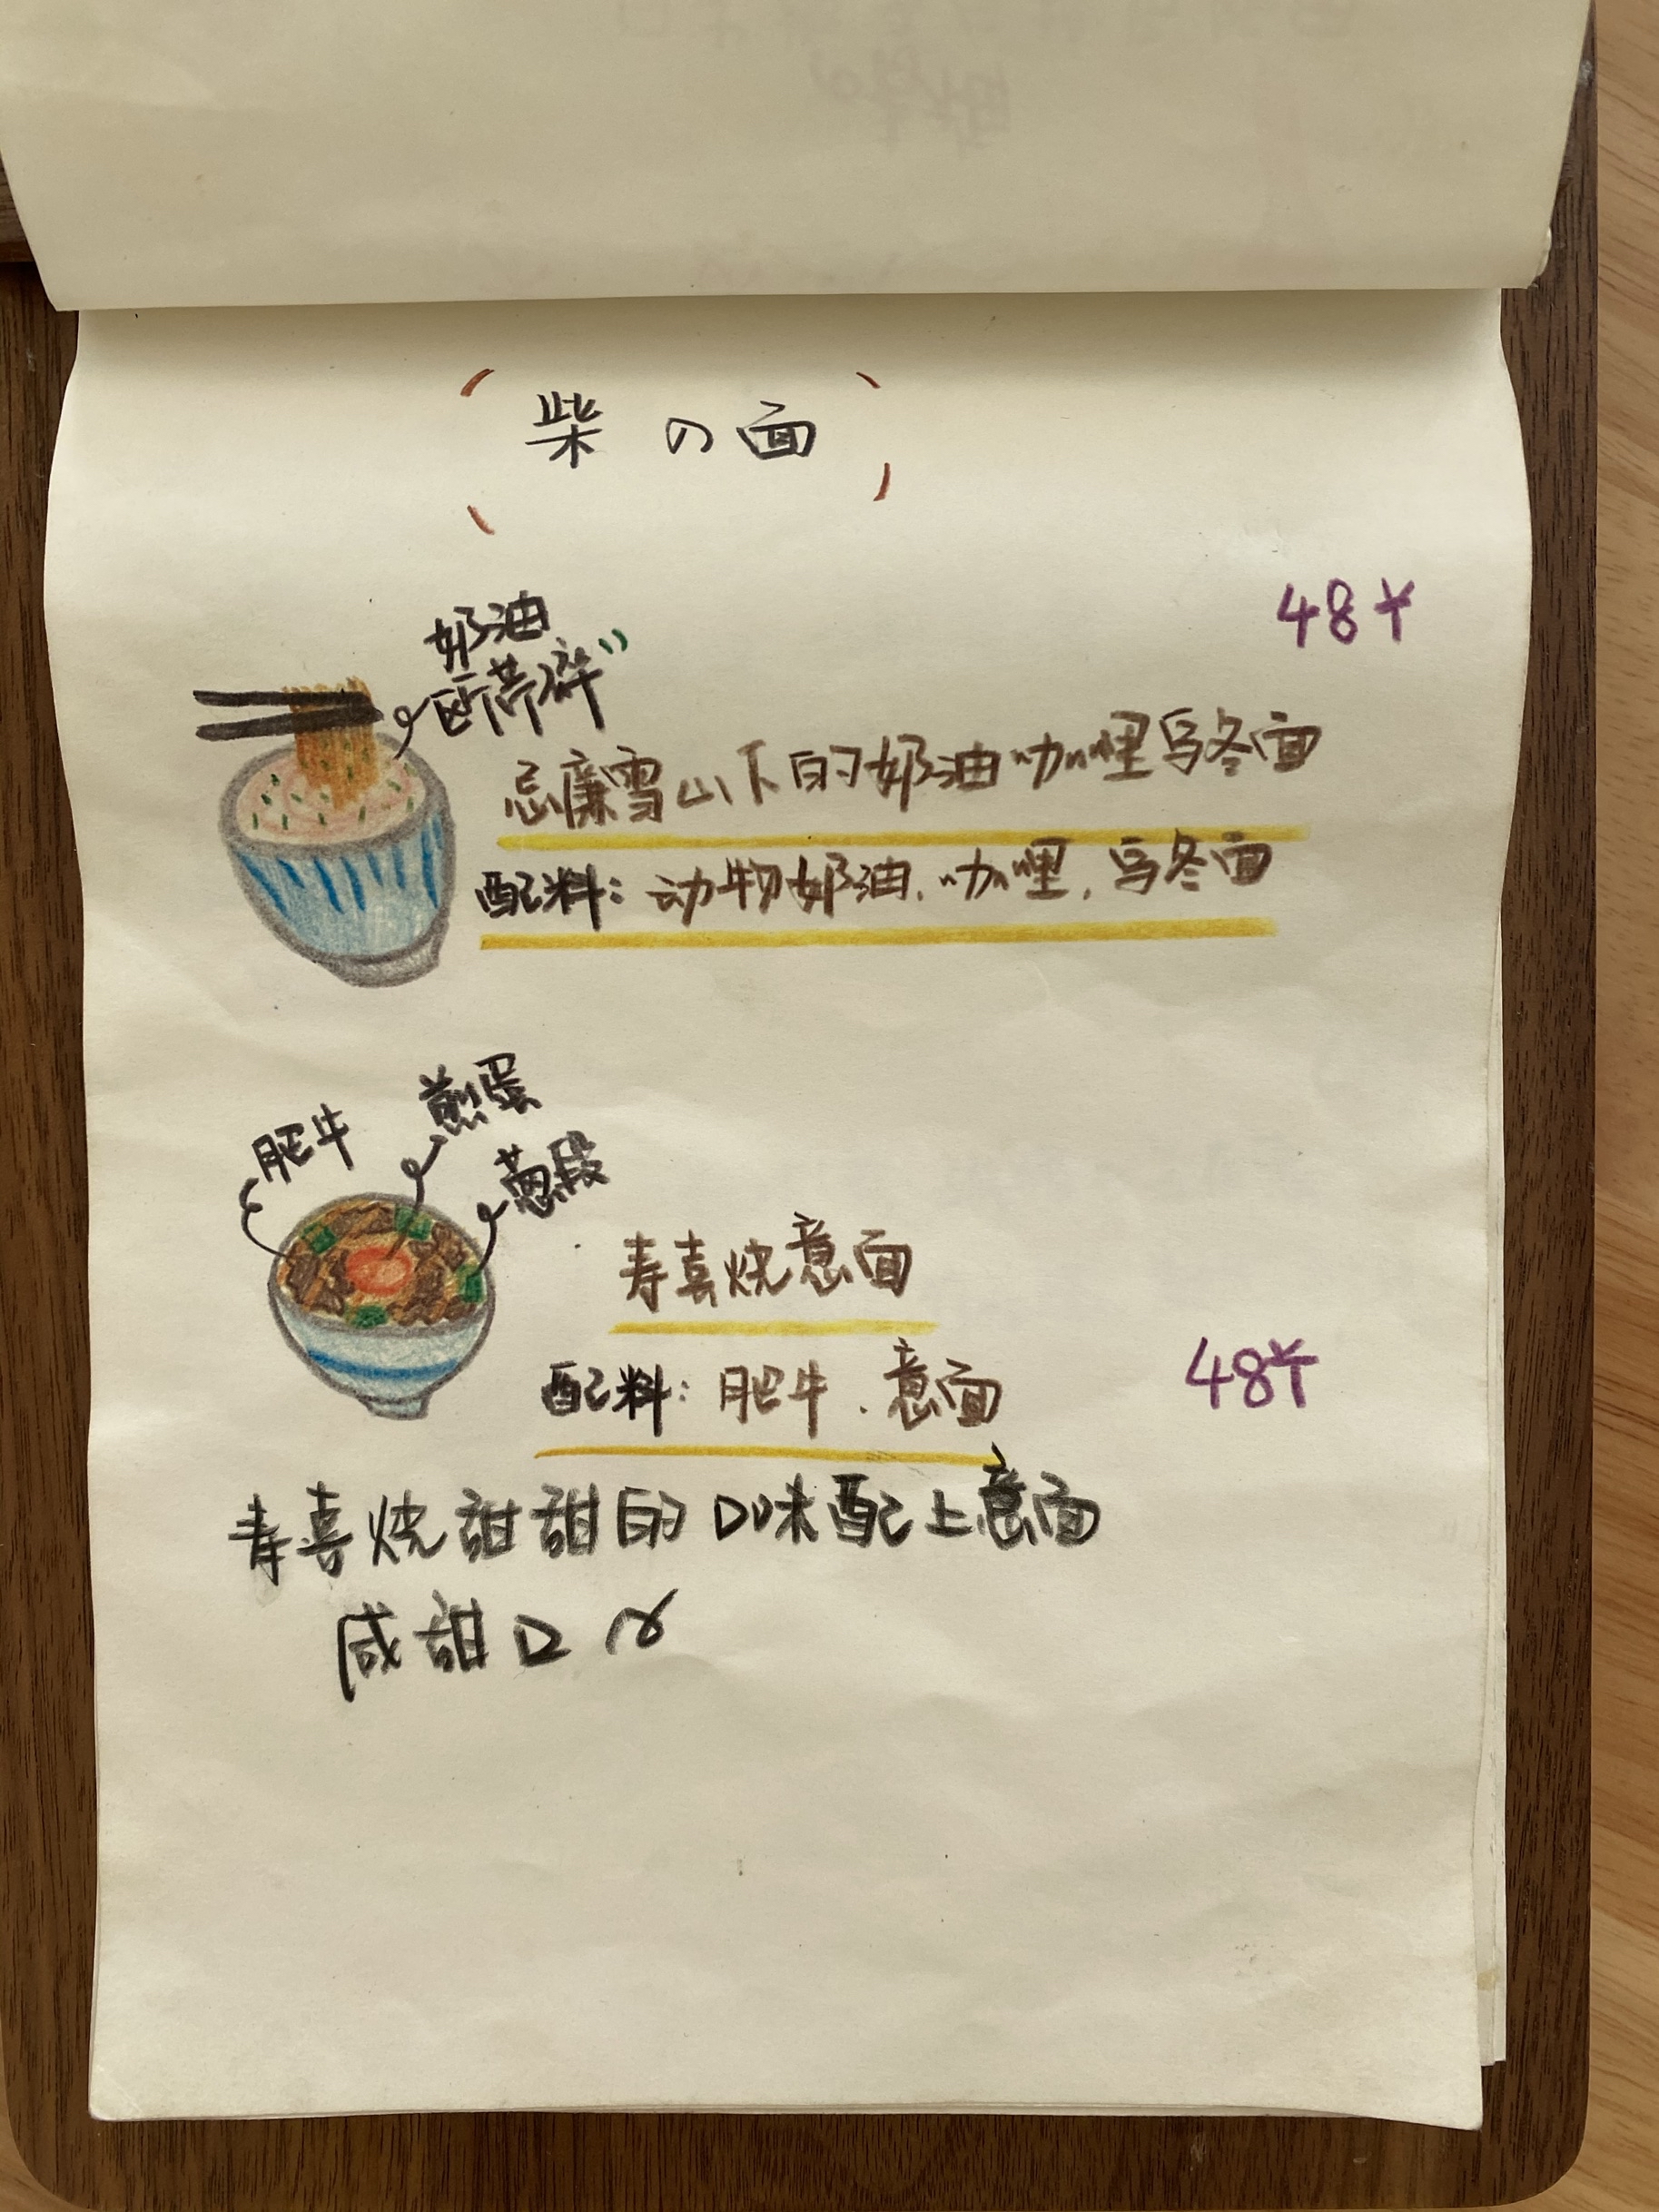 柴の面
48¥
奶油
欧芹碎
忌廉雪山下的奶油咖喱乌冬面
配料：动物奶油．咖喱．乌冬面
煎蛋
肥牛
葱段
寿喜烧意面
配料：肥牛．意面
48¥
寿喜烧甜甜的口味配上意面
咸甜口